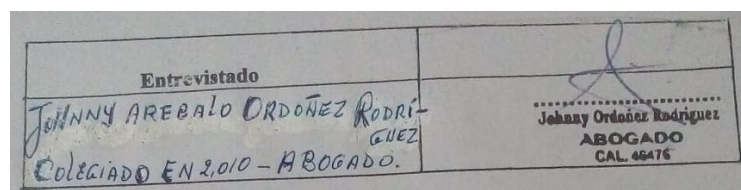 Entrevistado
JOHNNY AREBALO ORDOÑEZ RODRÍ-
GUEZ
COLEGIADO EN 2,010 - ABOGADO.
Johnny Ordoñez Rodriguez
ABOGADO
CAL. 46476